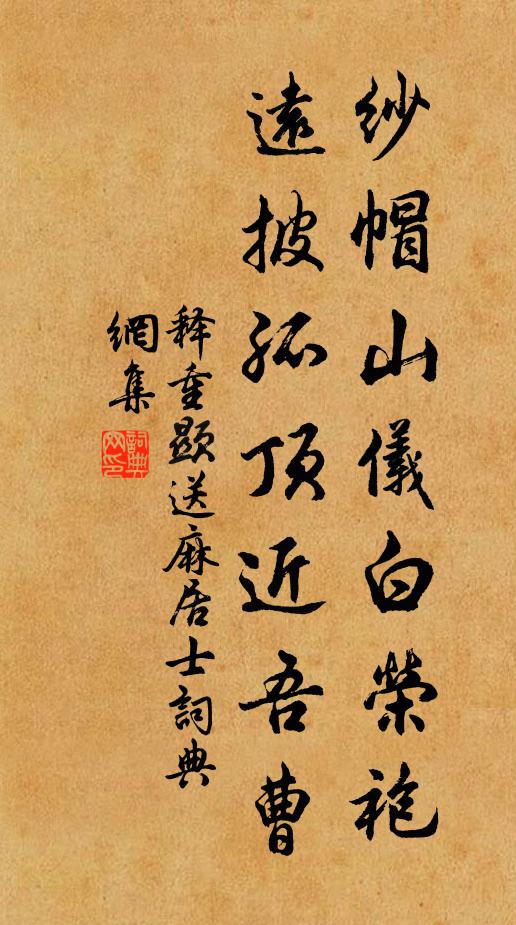 紗帽山儀白榮袍
遠披孤頂近吾曹
释重顯送麻居士詞典
網集
詞典
网印